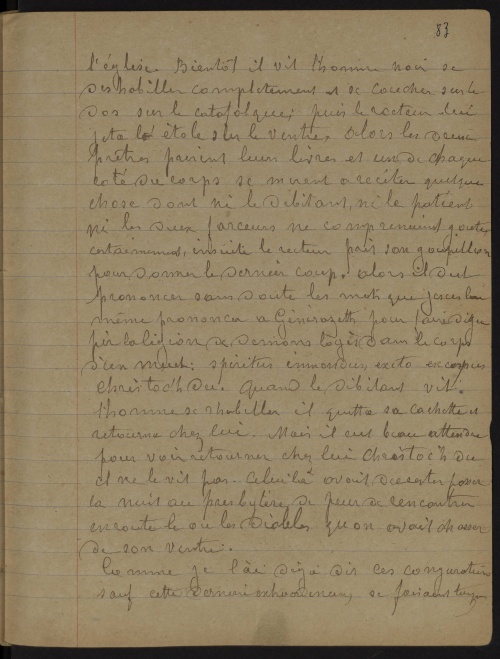 83
l'église. Bientôt il vit l'homme noir se
deshabiller completement et se coucher sur le
dos sur le catafalque; puis le recteur lui
jeta le étole sur le ventre. Alors les deux
prêtres prirent leurs livres et un de chaque
coté du corps se mirent a réciter quelque
chose dont ni le débitant, ni le patient
ni les deux farceurs ne comprenaient goutte
certainement, insuite le recteur prit son goupillon
pour donner le dernier coup. alors il dut
prononcer sans doute les mots que Jesus lui
même prononca a Génerazeth pour faire deguer
pir la légion de demons logés dans le corps
d'un muet: spiritus immondus, exito ex corpus
Christoc'h Du. Quand le débitant vit
l'homme se rhabiller il quitta sa cachette et
retourna chez lui. Mais il eut beau attendre
pour voir retourner chez lui Christoc'h Du
il ne le vit pas. Celui là avait du rester passer
la nuit au presbytère de peur de rencontrer
en route le ou les Diables qu'on avait chassé
de son ventre.
Comme je l'ai déjà dit ces conjurations
sauf cette dernière, se faisaient toujours